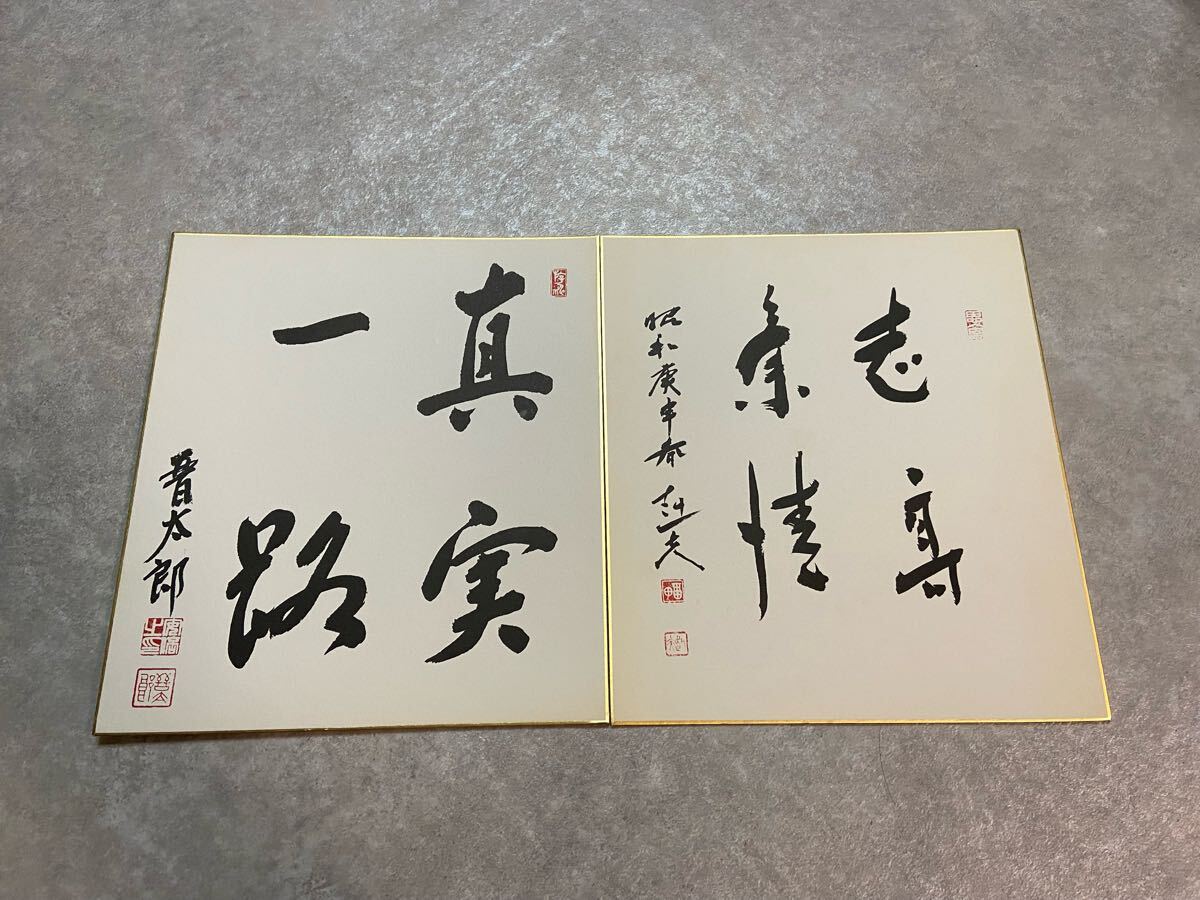 真実
一路
晋太郎
志高
情
昭和庚申春 赳夫